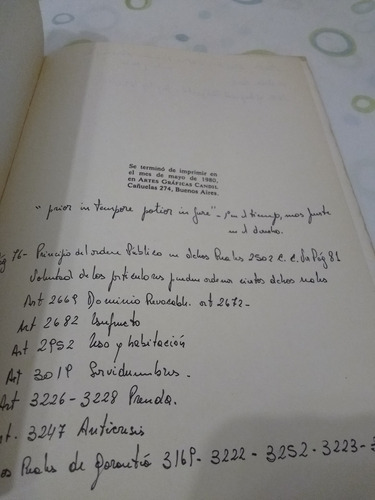 Se terminó de imprimir en
el mes de mayo de 1980,
en ARTES GRÁFICAS CANDIL
Cañuelas 274, Buenos Aires.
"prior in tempore potior in jure" - 1º en el tiempo, mas fuerte
en el derecho.
Pág 76- Principio del orden Público en dchos Reales 2502 C.C. Pág 81
Voluntad de los particulares pueden ordenar ciertos dchos reales
Art 2669 Dominio Revocable. art 2672-
Art 2682 Usufructo
Art 2952 Uso y habitación
Art 3019 Servidumbres.
Art 3226-3228 Prenda.
Art. 3247 Anticresis
Reales de garantía 3169-3222-3252-3223-3